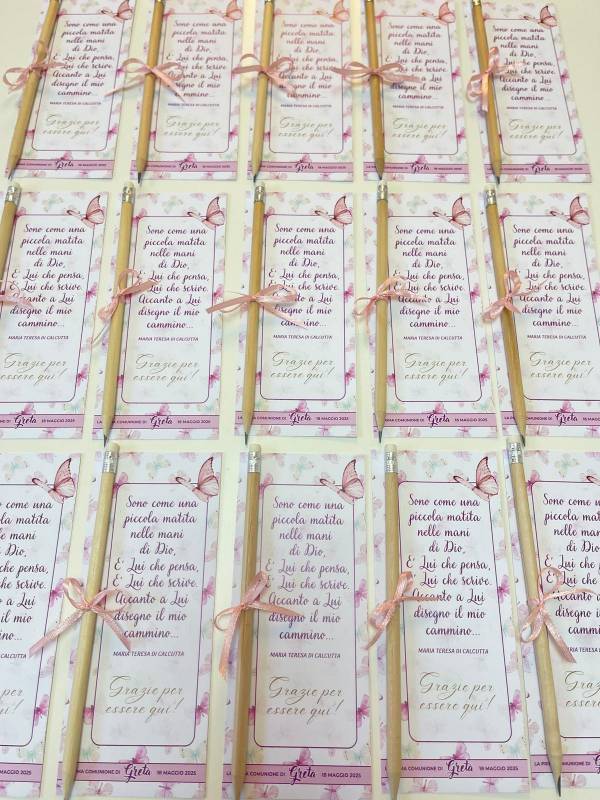 Sono come una
piccola matita
nelle mani
di Dio,
È Lui che pensa,
È Lui che scrive.
Accanto a Lui
disegno il mio
cammino...
MARIA TERESA DI CALCUTTA
Grazie per
essere qui!
LA PRIMA COMUNIONE DI Greta 18 MAGGIO 2025